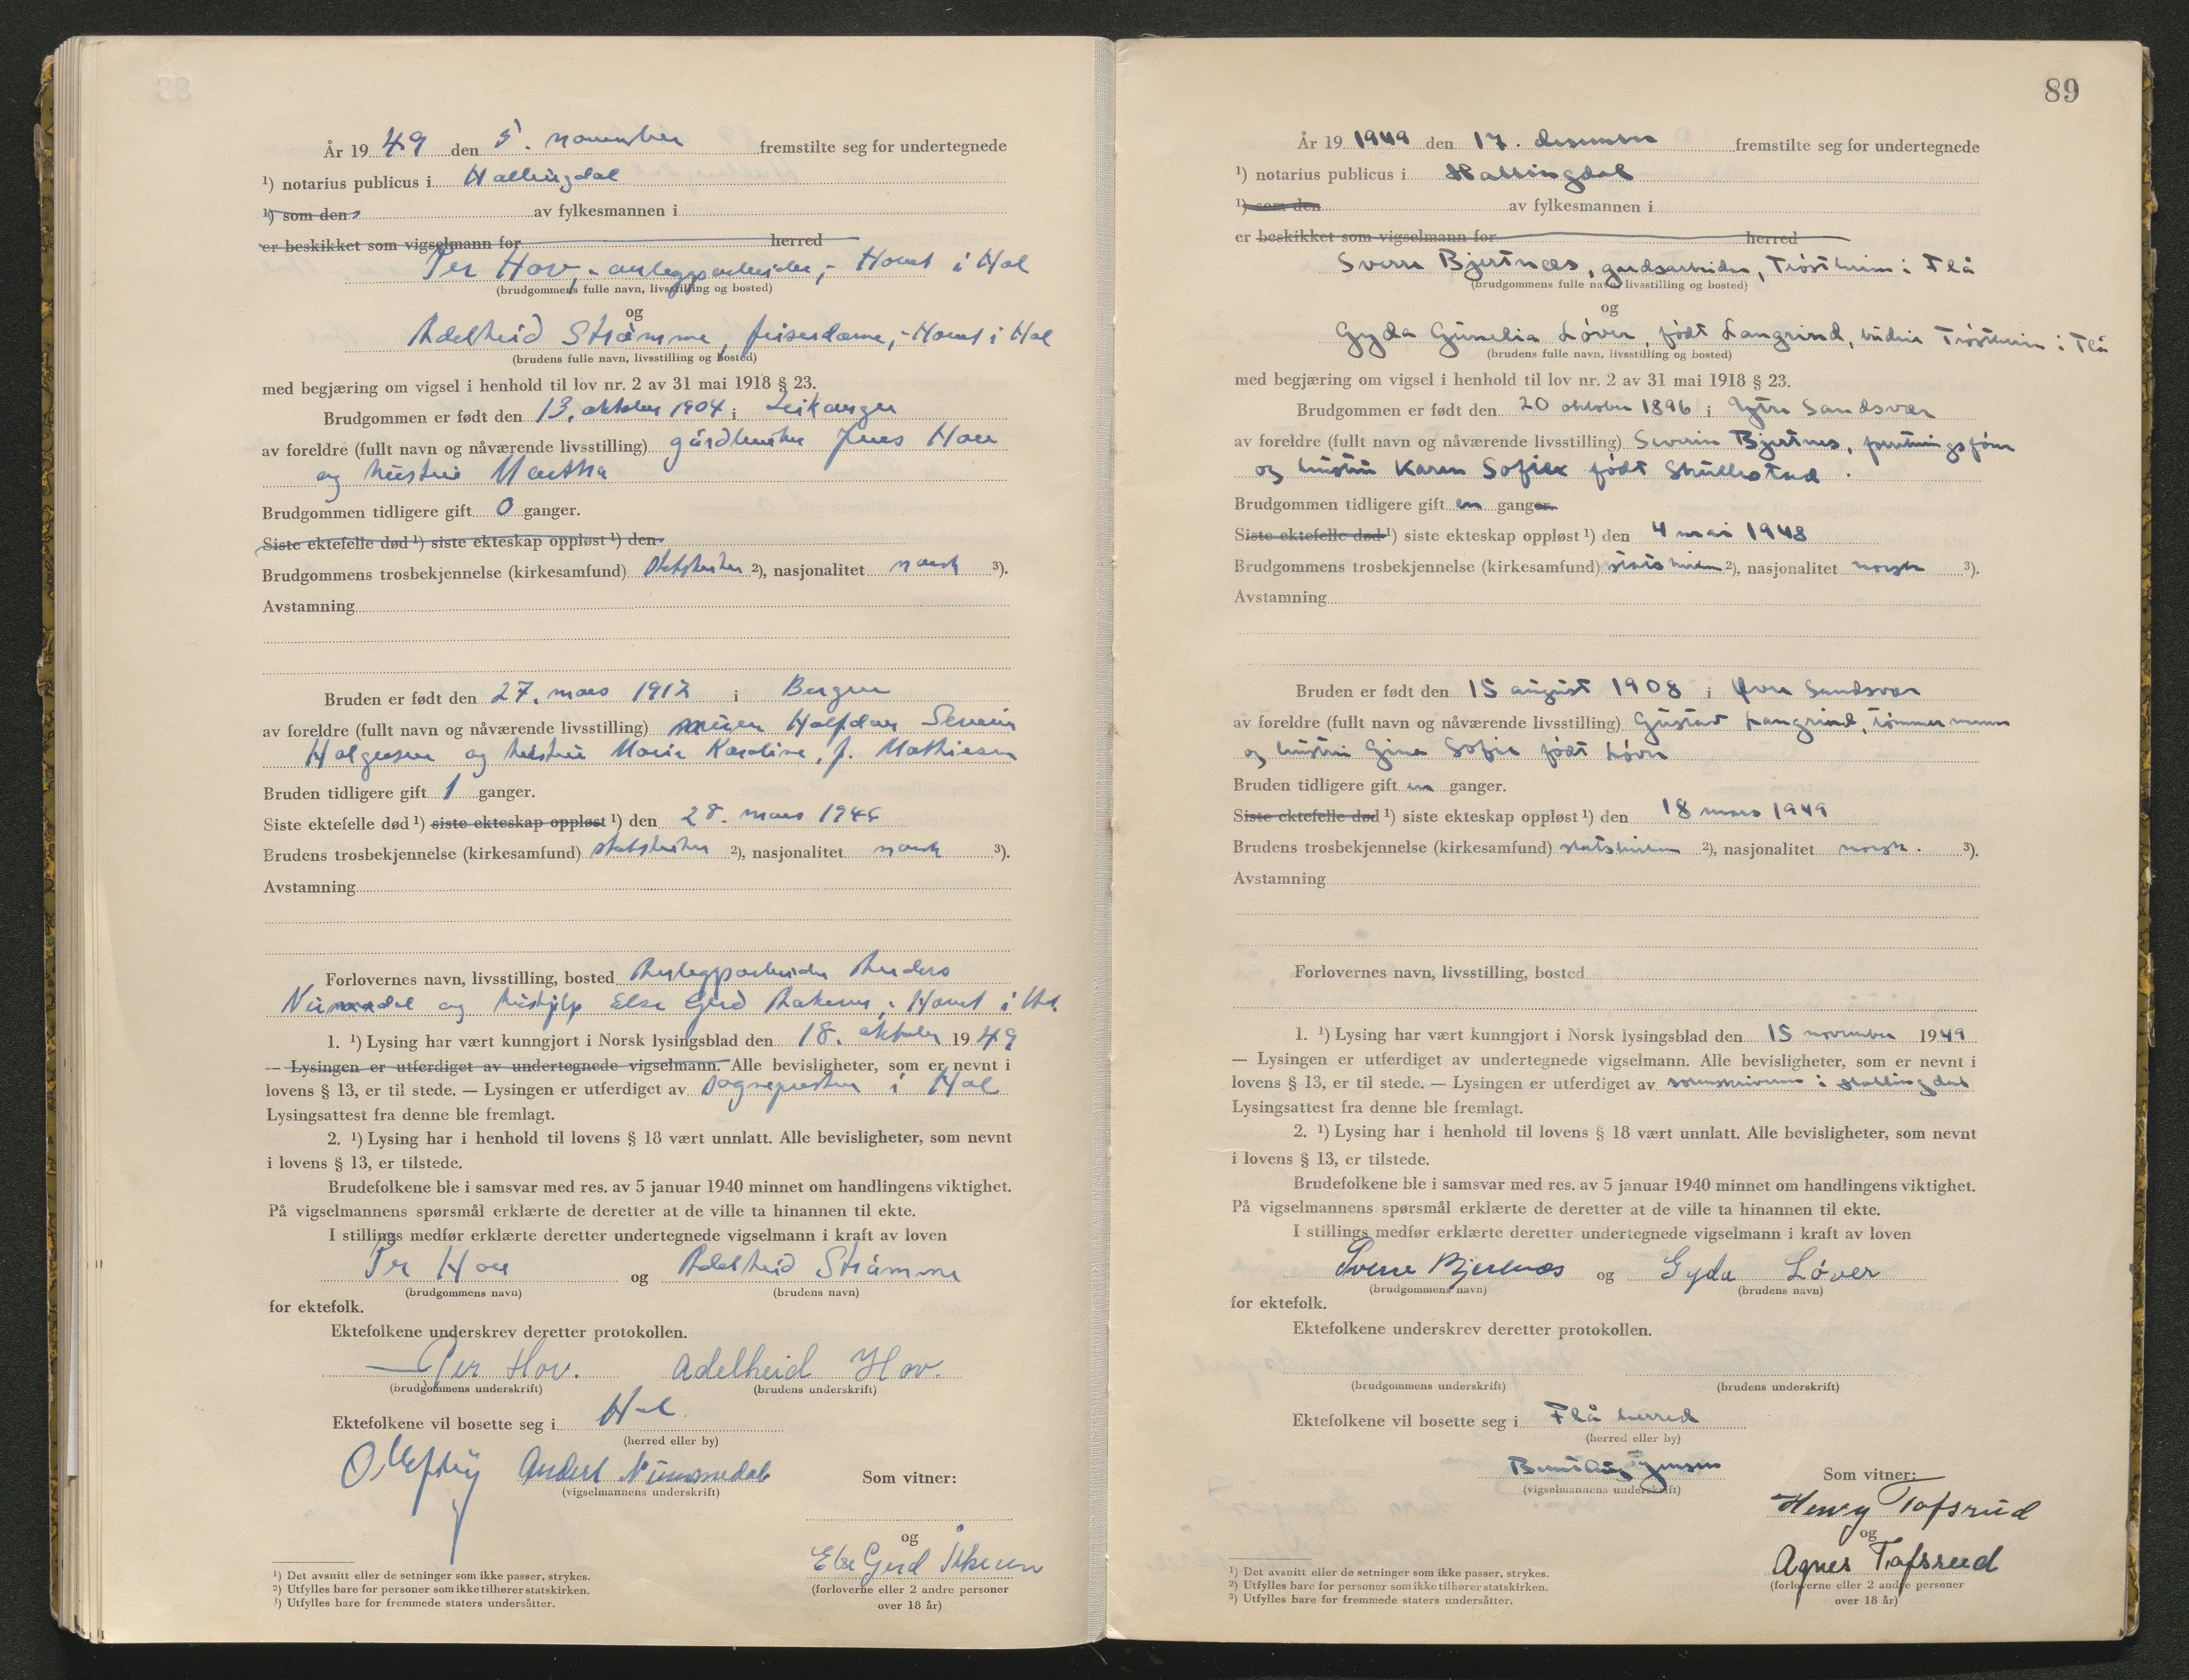 År 19 49 den 5. november fremstilte seg for undertegnede
¹) notarius publicus i Hallingdal
¹) som den av fylkesmannen i
er beskikket som vigselmann for herred
Per Hov, - anleggsarbeider, - Hovet i Hol
(brudgommens fulle navn, livsstilling og bosted)
og
Adelheid Strømme, frisørdame, - Hovet i Hol
(brudens fulle navn, livsstilling og bosted)
med begjæring om vigsel i henhold til lov nr. 2 av 31 mai 1918 § 23.
Brudgommen er født den 13. oktober 1904 i Leikanger
av foreldre (fullt navn og nåværende livsstilling) gårdbruker Jens Hov
og hustru Martha
Brudgommen tidligere gift 0 ganger.
Siste ektefelle død ¹) siste ekteskap oppløst ¹) den
Brudgommens trosbekjennelse (kirkesamfund) statskirken ²), nasjonalitet norsk ³).
Avstamning
Bruden er født den 27. mars 1912 i Bergen
av foreldre (fullt navn og nåværende livsstilling) Halfdan Severin
og hustru Marie Karoline, f. Mathiesen
Bruden tidligere gift 1 ganger.
Siste ektefelle død ¹) siste ekteskap oppløst ¹) den 28. mars
Brudens trosbekjennelse (kirkesamfund) statskirken ²), nasjonalitet norsk ³).
Avstamning
Forlovernes navn, livsstilling, bosted Anleggsarbeider Anders
og hushjelp Else Gerd Hovet i Hol
1. ¹) Lysing har vært kunngjort i Norsk lysingsblad den 18. oktober 19 49
— Lysingen er utferdiget av undertegnede vigselmann. Alle bevisligheter, som er nevnt i
lovens § 13, er til stede. — Lysingen er utferdiget av sognepresten i Hol
Lysingsattest fra denne ble fremlagt.
2. ¹) Lysing har i henhold til lovens § 18 vært unnlatt. Alle bevisligheter, som nevnt
i lovens § 13, er tilstede.
Brudefolkene ble i samsvar med res. av 5 januar 1940 minnet om handlingens viktighet.
På vigselmannens spørsmål erklærte de deretter at de ville ta hinannen til ekte.
I stillings medfør erklærte deretter undertegnede vigselmann i kraft av loven
Per Hov og Adelheid Strømme
(brudgommens navn) (brudens navn)
for ektefolk.
Ektefolkene underskrev deretter protokollen.
Per Hov. Adelheid Hov.
(brudgommens underskrift) (brudens underskrift)
Ektefolkene vil bosette seg i Hol
(herred eller by)
Som vitner:
(vigselmannens underskrift)
og
Else Gerd
(forloverne eller 2 andre personer
over 18 år)
¹) Det avsnitt eller de setninger som ikke passer, strykes.
²) Utfylles bare for personer som ikke tilhører statskirken.
³) Utfylles bare for fremmede staters undersåtter.
89
År 19 1949 den 17. desember fremstilte seg for undertegnede
¹) notarius publicus i Hallingdal
¹) som den av fylkesmannen i
er beskikket som vigselmann for herred
Sverre Bjertnæs, gardsarbeider, Trøstheim i Flå
(brudgommens fulle navn, livsstilling og bosted)
og
Gyda Gunelia Løver, født Langrind, Trøstheim i Flå
(brudens fulle navn, livsstilling og bosted)
med begjæring om vigsel i henhold til lov nr. 2 av 31 mai 1918 § 23.
Brudgommen er født den 20 oktober 1896 i Ytre Sandsvær
av foreldre (fullt navn og nåværende livsstilling) Severin Bjertnes,
og hustru Karen Sofie født Skullestad.
Brudgommen tidligere gift en ganger
Siste ektefelle død ¹) siste ekteskap oppløst ¹) den 4 mai 1948
Brudgommens trosbekjennelse (kirkesamfund) statskirken ²), nasjonalitet norsk ³).
Avstamning
Bruden er født den 15 august 1908 i Øvre Sandsvær
av foreldre (fullt navn og nåværende livsstilling) Gustav Langrind, tømmermann
og hustru Gina Sofie født Løver
Bruden tidligere gift en ganger.
Siste ektefelle død ¹) siste ekteskap oppløst ¹) den 18 mars 1949
Brudens trosbekjennelse (kirkesamfund) statskirken ²), nasjonalitet norsk. ³).
Avstamning
Forlovernes navn, livsstilling, bosted
1. ¹) Lysing har vært kunngjort i Norsk lysingsblad den 15 november 19 49
— Lysingen er utferdiget av undertegnede vigselmann. Alle bevisligheter, som er nevnt i
lovens § 13, er til stede. — Lysingen er utferdiget av sorenskriveren i Hallingdal
Lysingsattest fra denne ble fremlagt.
2. ¹) Lysing har i henhold til lovens § 18 vært unnlatt. Alle bevisligheter, som nevnt
i lovens § 13, er tilstede.
Brudefolkene ble i samsvar med res. av 5 januar 1940 minnet om handlingens viktighet.
På vigselmannens spørsmål erklærte de deretter at de ville ta hinannen til ekte.
I stillings medfør erklærte deretter undertegnede vigselmann i kraft av loven
Sverre Bjertnæs og Gyda Løver
(brudgommens navn) (brudens navn)
for ektefolk.
Ektefolkene underskrev deretter protokollen.
(brudgommens underskrift) (brudens underskrift)
Ektefolkene vil bosette seg i Flå herred
(herred eller by)
Som vitner:
(vigselmannens underskrift)
Henry Tofsrud
og
Agnes Tofsrud
(forloverne eller 2 andre personer
over 18 år)
¹) Det avsnitt eller de setninger som ikke passer, strykes.
²) Utfylles bare for personer som ikke tilhører statskirken.
³) Utfylles bare for fremmede staters undersåtter.